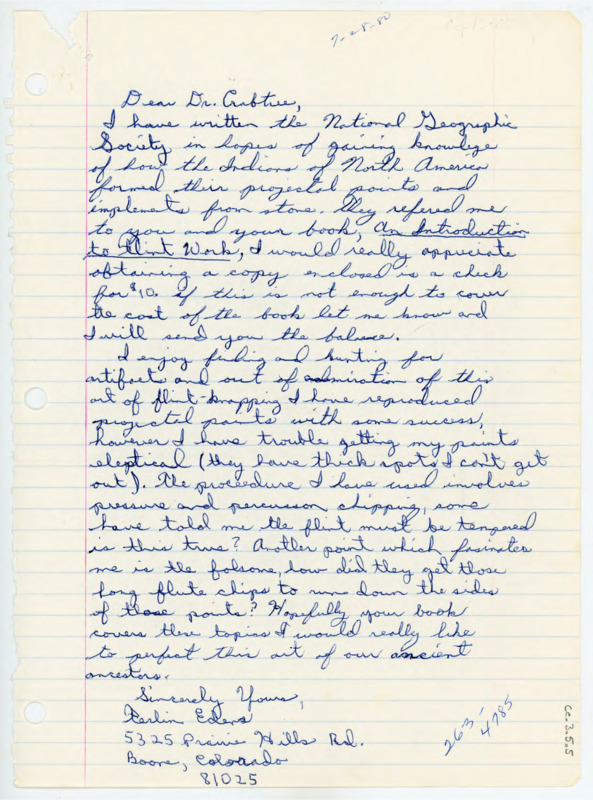 7-28-80
Dear Dr. Crabtree,
I have written the National Geographic
Society in hopes of gaining knowlege
of how the Indians of North America
formed their projectal points and
implements from stone. They refered me
to you and your book, An Introduction
to Flint Work, I would really appreciate
obtaining a copy enclosed is a check
for $10. if this is not enough to cover
the cost of the book let me know and
I will send you the balance.
I enjoy fishing and hunting for
artifacts and out of admiration of this
art of flint-knapping I have reproduced
projectal points with some success,
however I have trouble getting my points
eleptical (they have thick spots I can't get
out). The proceedure I have used involves
pressure and percussion chipping, some
have told me the flint must be tempered
is this true? Another point which fasinates
me is the folsome, how did they get those
long flute chips to run down the sides
of those points? Hopefully your book
covers these topics I would really like
to perfect this art of our ancient
ancestors.
Sincerely Yours,
Edens
5325 Prairie Hills Rd.
Boone, Colorado
81025
263-
4785
cc.3.5.5